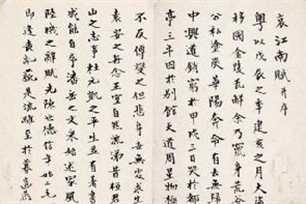 哀江南賦并序
粤以戊辰之年建亥之月大盗
移國金陵瓦解余乃竄身荒谷
公私塗炭華陽奔命有去無歸
中興道銷窮於甲戌三日哭於都
亭三年囚於別館天道周星物極
不反傅燮之但悲身世無處求生
袁安之每念王室自然流涕昔桓君
山之志事杜元凱之平生並有著書
咸能自序潘岳之文采始述家風
陸機之辭賦先陳世德信年始二毛
即逢喪亂藐是流離至於暮齒燕